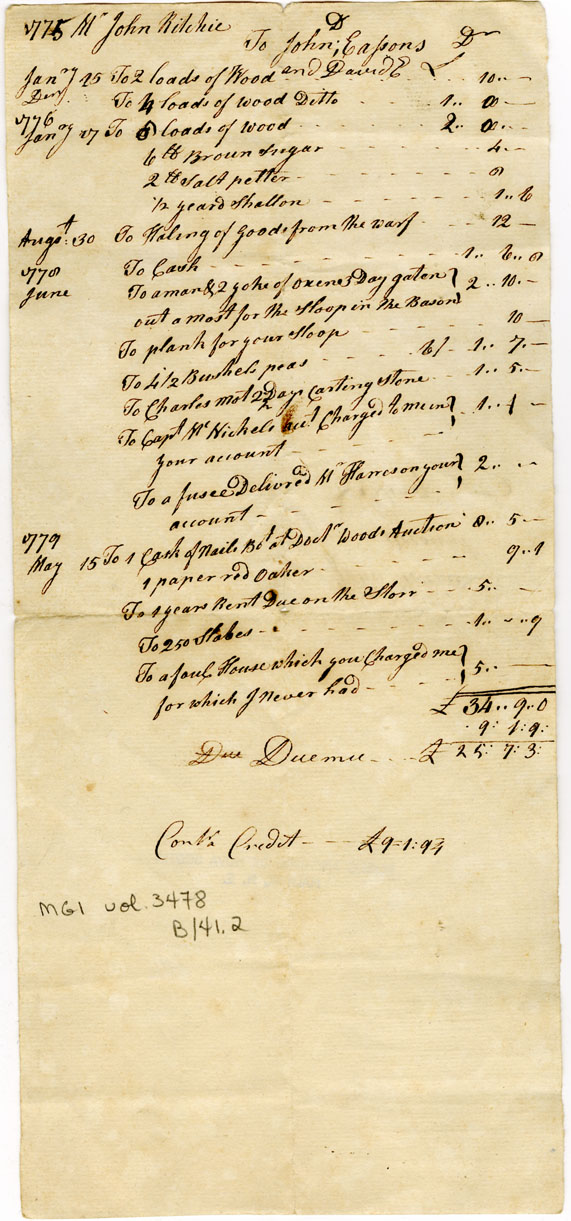 1775 Mr John Ritchie
To John; Easson's Dr
D
and David E
Janry 25 To 2 loads of Wood - - 10..-
Do To 4 loads of wood Ditto - 1.. 0 -
1776
Janry 17 To 8 loads of wood - - 2.. 0..-
6 lb Brown Sugar - - 4..-
2 lb Salt petter - - 8
1/2 yeard Shallon - - 1..6
Augst: 30 To Haling of Goods from the warf - - 12 -
1778 To Cash - - 1.. 6.. 8
June To a man & 2 yoke of Oxen 3 Day gaten } 2.. 10..-
out a most for the Sloop in the Bason
To plank for your Sloop - - 10 -
To 4 1/2 Bushels peas - - 6/ - 1.. 7..-
To Charles Mot 2 1/2 Days Carting Stone - 1.. 5..-
To Capt Mc Nichels act Charged to me in } 1.. 1 -
your account - -
To a fusee Delivred Mr Harreson your } 2.. .. -
account - -
1779
May 15 To 1 Cask of Nails Bot at Doctr Woods Auction 8.. 5..-
1 paper red Oaker - - 9..1
To 1 years Rent Due on the Storr - - 5.. -
To 250 Stabes - - 1.. - .. 9
To a foul House which you Charged me } 5.. -
for which I Never had - -
£ 34.. 9..0
9: 1:9:
Due Due me - - £ 25: 7: 3:
Contra Credit - - £9-1:9 1/2
MG1 vol. 3478
B/41.2